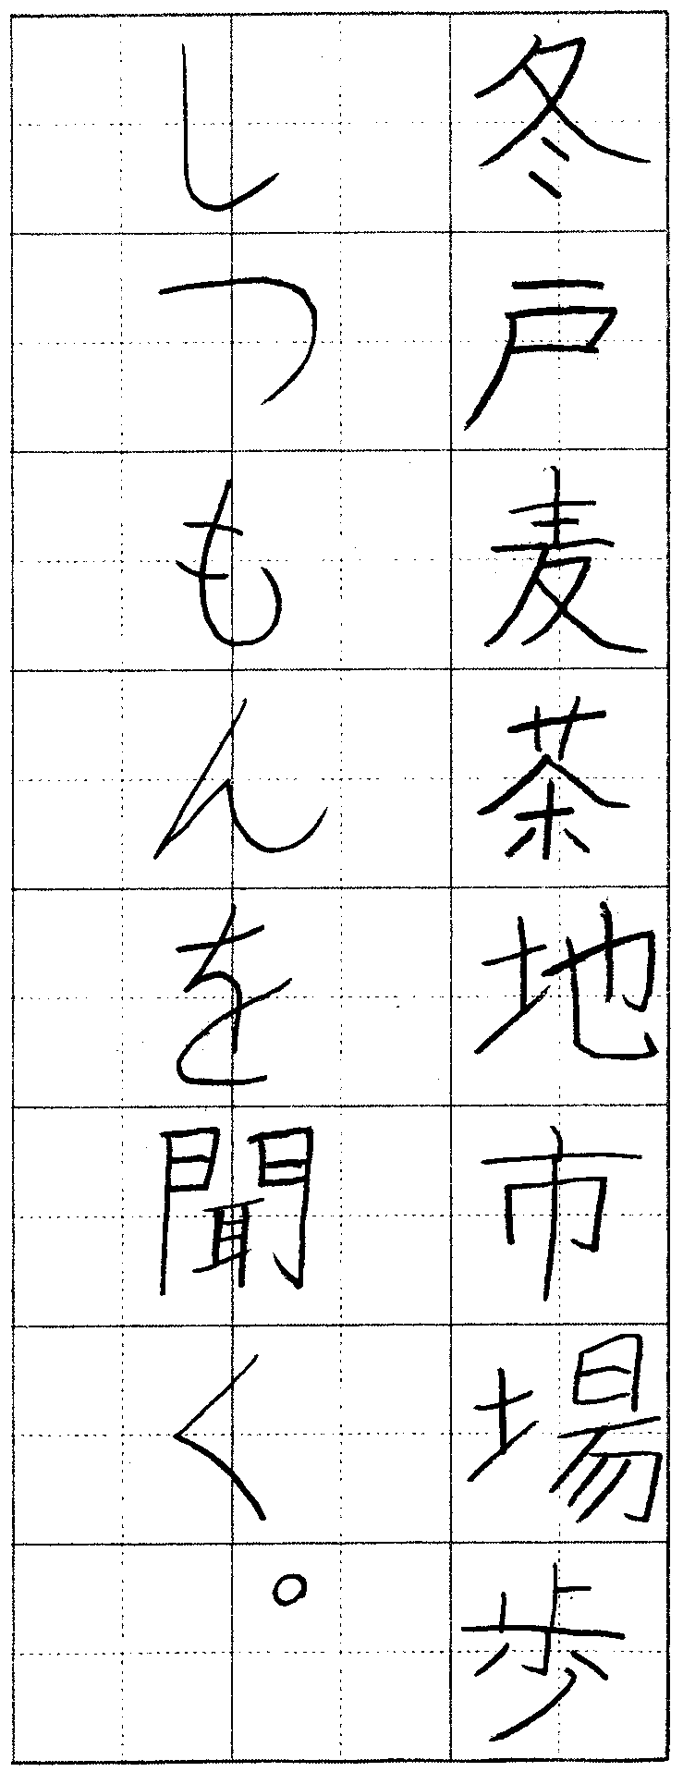 冬戸麦茶地市場歩
しつもんを聞く。